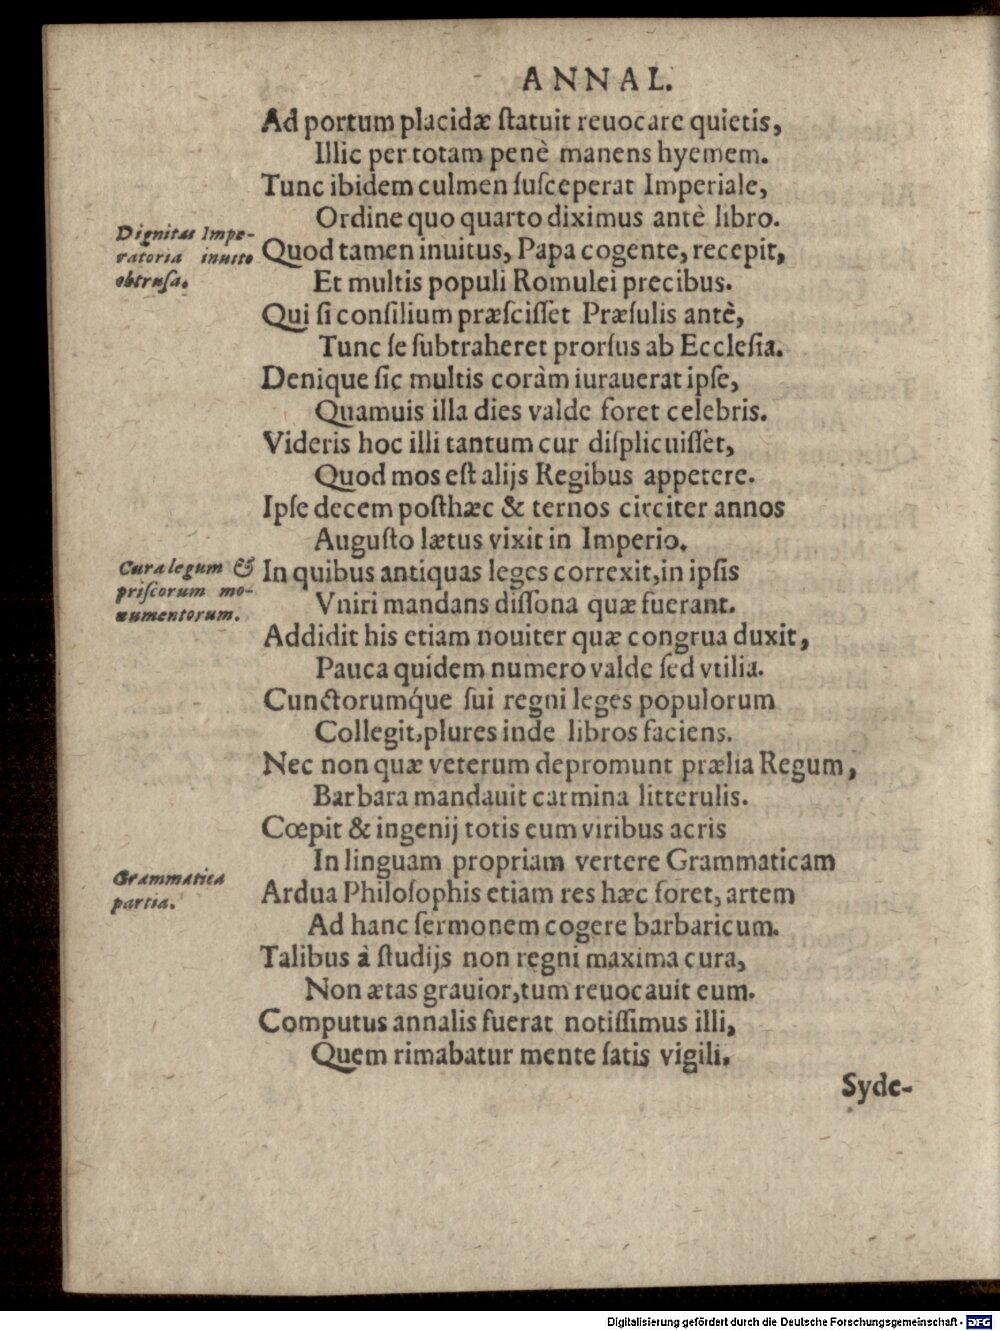 ANNAL.
Ad portum placidæ ſtatuit reuocare quietis,
Illic per totam penè manens hyemem.
Tunc ibidem culmen ſuſceperat Imperiale,
Ordine quo quarto diximus antè libro.
Dignitas Impe-
ratoria inuito
obtruſa.
Quod tamen inuitus, Papa cogente, recepit,
Et multis populi Romulei precibus.
Qui ſi conſilium præſciſſet Præſulis antè,
Tunc ſe ſubtraheret prorſus ab Eccleſia.
Denique ſic multis coràm iurauerat ipſe,
Quamuis illa dies valde foret celebris.
Videris hoc illi tantum cur diſplicuiſſèt,
Quod mos eſt alijs Regibus appetere.
Ipſe decem poſthæc & ternos circiter annos
Auguſto lætus vixit in Imperio.
Cura legum &
priſcorum mo-
numentorum.
In quibus antiquas leges correxit, in ipſis
Vniri mandans diſſona quæ fuerant.
Addidit his etiam nouiter quæ congrua duxit,
Pauca quidem numero valde ſed vtilia.
Cunctorumq́ue ſui regni leges populorum
Collegit, plures inde libros faciens.
Nec non quæ veterum depromunt prælia Regum,
Barbara mandauit carmina litterulis.
Cœpit & ingenij totis cum viribus acris
In linguam propriam vertere Grammaticam
Grammatica
partia.
Ardua Philoſophis etiam res hæc foret, artem
Ad hanc ſermonem cogere barbaricum.
Talibus à ſtudijs non regni maxima cura,
Non ætas grauior, tum reuocauit eum.
Computus annalis fuerat notiſſimus illi,
Quem rimabatur mente ſatis vigili.
Syde-
Digitalisierung gefördert durch die Deutsche Forschungsgemeinschaft - DFG